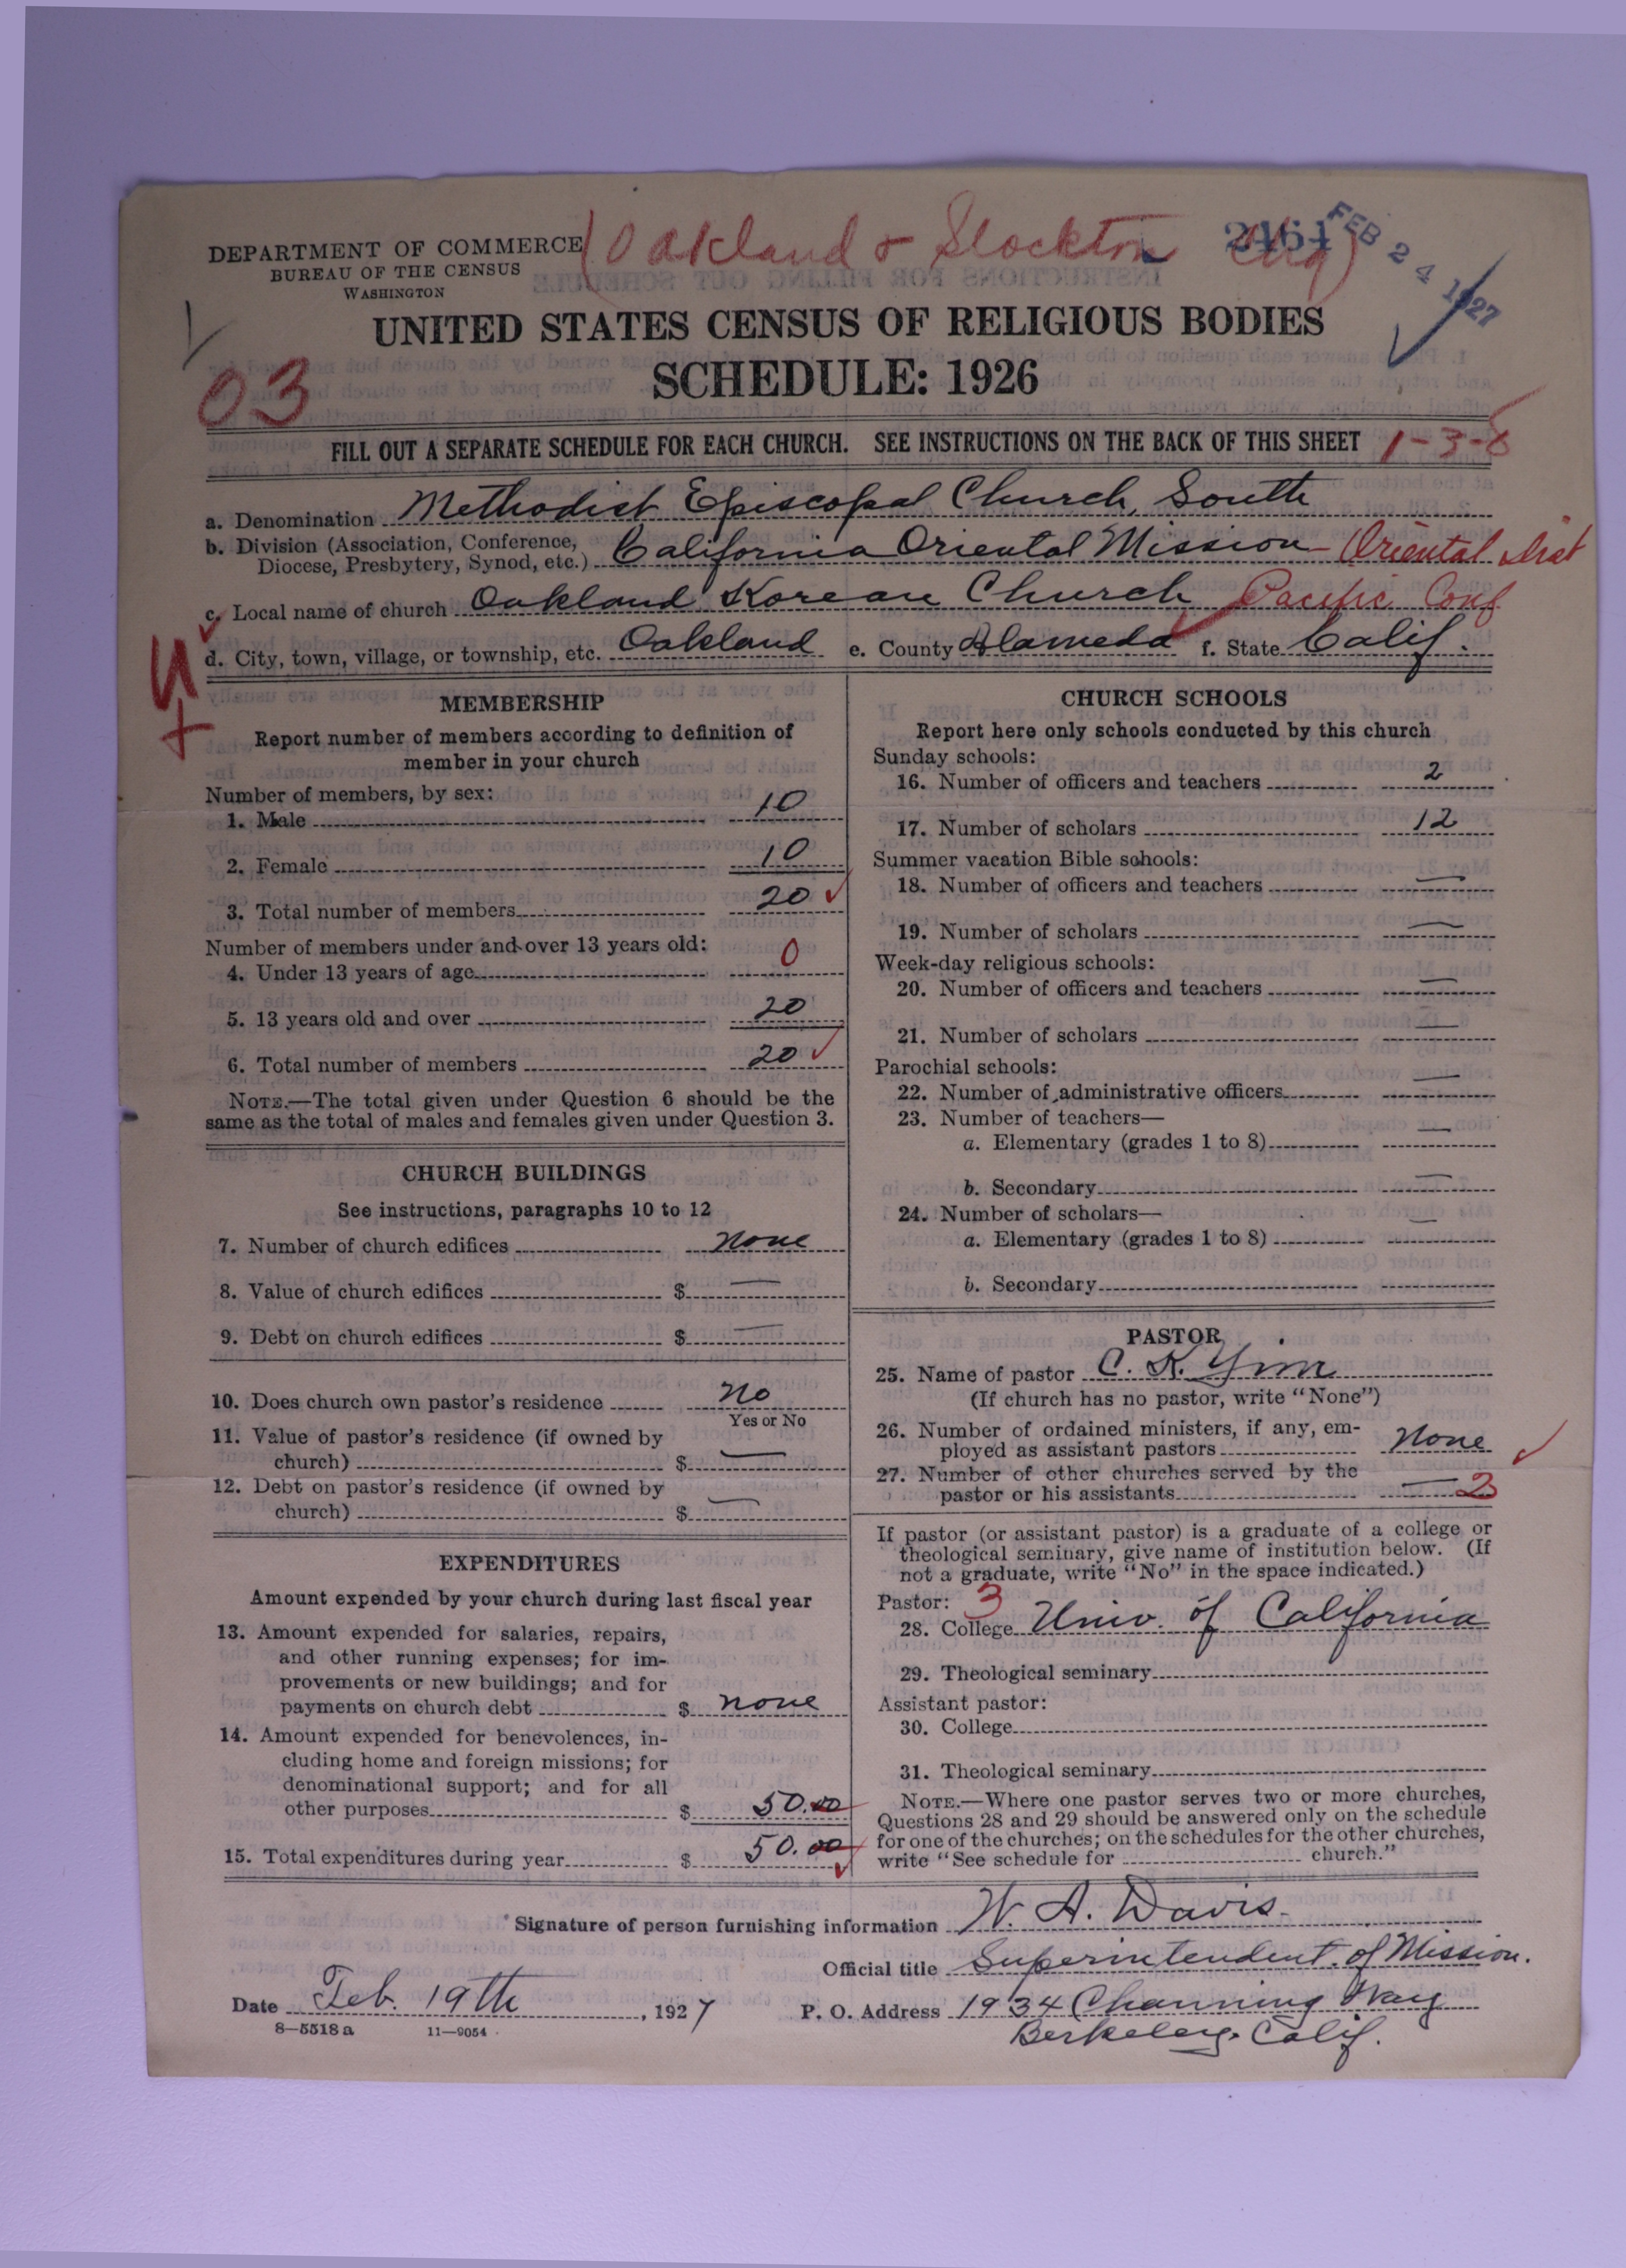 (Oakland & Stockton Chg)
2464
FEB 24 1927
DEPARTMENT OF COMMERCE
BUREAU OF THE CENSUS
WASHINGTON
UNITED STATES CENSUS OF RELIGIOUS BODIES
SCHEDULE: 1926
03
FILL OUT A SEPARATE SCHEDULE FOR EACH CHURCH. SEE INSTRUCTIONS ON THE BACK OF THIS SHEET 1-3-8
a. Denomination Methodist Episcopal Church, South
b. Division (Association, Conference, Diocese, Presbytery, Synod, etc.) California Oriental Mission - Oriental Dist
c. Local name of church Oakland Korean Church Pacific Conf
d. City, town, village, or township, etc. Oakland e. County Alameda f. State Calif.
MEMBERSHIP
Report number of members according to definition of
member in your church
Number of members, by sex:
1. Male 10
2. Female 10
3. Total number of members 20
Number of members under and over 13 years old:
4. Under 13 years of age 0
5. 13 years old and over 20
6. Total number of members 20
NOTE.—The total given under Question 6 should be the
same as the total of males and females given under Question 3.
CHURCH BUILDINGS
See instructions, paragraphs 10 to 12
7. Number of church edifices none
8. Value of church edifices $ —
9. Debt on church edifices $ —
10. Does church own pastor's residence no
Yes or No
11. Value of pastor's residence (if owned by
church) $ —
12. Debt on pastor's residence (if owned by
church) $ —
EXPENDITURES
Amount expended by your church during last fiscal year
13. Amount expended for salaries, repairs,
and other running expenses; for im-
provements or new buildings; and for
payments on church debt $ none
14. Amount expended for benevolences, in-
cluding home and foreign missions; for
denominational support; and for all
other purposes $ 50.00
15. Total expenditures during year $ 50.00
CHURCH SCHOOLS
Report here only schools conducted by this church
Sunday schools:
16. Number of officers and teachers 2
17. Number of scholars 12
Summer vacation Bible schools:
18. Number of officers and teachers —
19. Number of scholars —
Week-day religious schools:
20. Number of officers and teachers —
21. Number of scholars —
Parochial schools:
22. Number of administrative officers —
23. Number of teachers—
a. Elementary (grades 1 to 8) —
b. Secondary —
24. Number of scholars—
a. Elementary (grades 1 to 8) —
b. Secondary
PASTOR
25. Name of pastor C. K. Yim
(If church has no pastor, write "None")
26. Number of ordained ministers, if any, em-
ployed as assistant pastors none
27. Number of other churches served by the
pastor or his assistants — 2
If pastor (or assistant pastor) is a graduate of a college or
theological seminary, give name of institution below. (If
not a graduate, write "No" in the space indicated.)
Pastor: 3
28. College Univ. of California
29. Theological seminary
Assistant pastor:
30. College
31. Theological seminary
NOTE.—Where one pastor serves two or more churches,
Questions 28 and 29 should be answered only on the schedule
for one of the churches; on the schedules for the other churches,
write "See schedule for church."
Signature of person furnishing information W. A. Davis
Official title Superintendent of Mission.
Date Feb. 19th, 1927 P. O. Address 1934 Channing Way
8—5518a 11—9054 Berkeley, Calif.